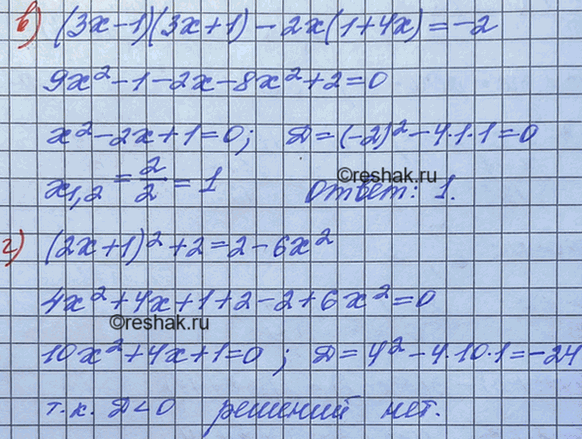 в) (3x-1)(3x+1) - 2x(1+4x) = -2
9x² - 1 - 2x - 8x² + 2 = 0
x² - 2x + 1 = 0; D = (-2)² - 4·1·1 = 0
©reshak.ru
x₁,₂ = 2/2 = 1 Ответ: 1.
г) (2x+1)² + 2 = 2 - 6x²
4x² + 4x + 1 + 2 - 2 + 6x² = 0
©reshak.ru
10x² + 4x + 1 = 0; D = 4² - 4·10·1 = -24
т.к. D < 0 решений нет.